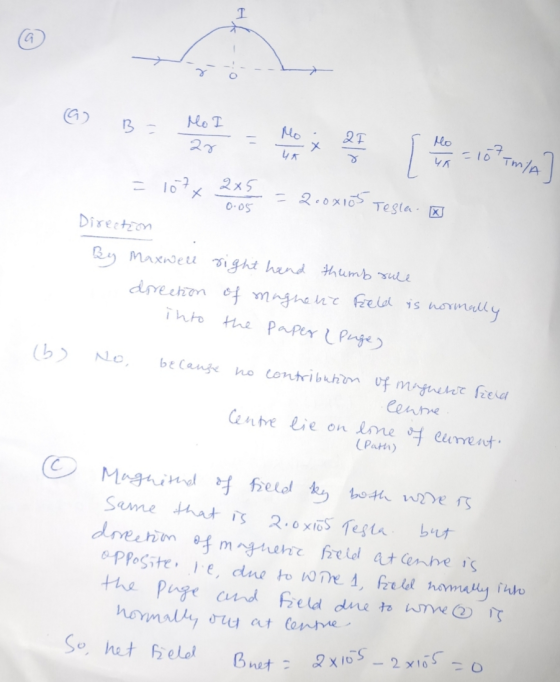 (a)
I
r
O
(a) B = μ0 I / 2r = μ0 / 4π × 2I / r [ μ0 / 4π = 10⁻⁷ Tm/A ]
= 10⁻⁷ × 2×5 / 0.05 = 2.0×10⁻⁵ Tesla. ☒
Direction
By Maxwell right hand thumb rule
direction of magnetic field is normally
into the paper (page)
(b) No, because no contribution of magnetic field
centre
Centre lie on line of current.
(path)
(c) Magnitud of field by both wire is
same that is 2.0×10⁻⁵ Tesla. but
direction of magnetic field at centre is
opposite. i.e, due to wire 1, field normally into
the page and field due to wire (2) is
normally out at centre.
So, net field Bnet = 2×10⁻⁵ − 2×10⁻⁵ = 0